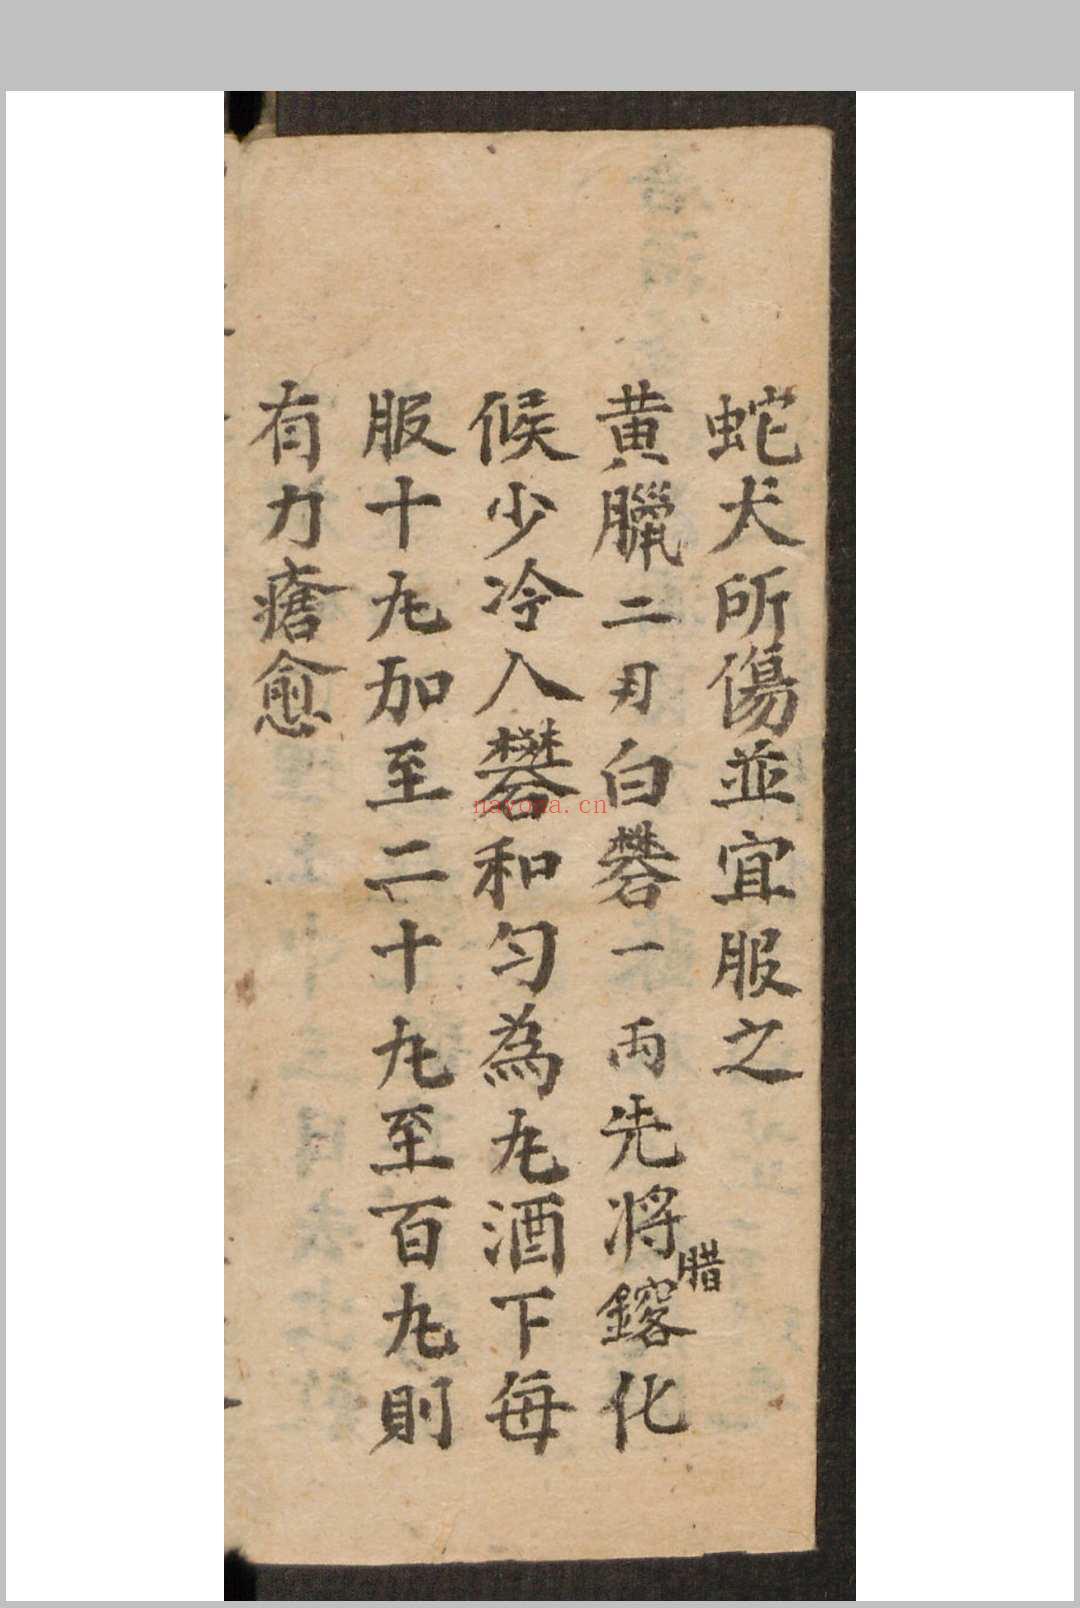 蛇犬所傷並宜服之
黃臘二刄白礬一両先將腊鎔化
候少冷入礬和匀為丸酒下每
服十丸加至二十丸至百丸則
有力瘡愈
nayona.cn